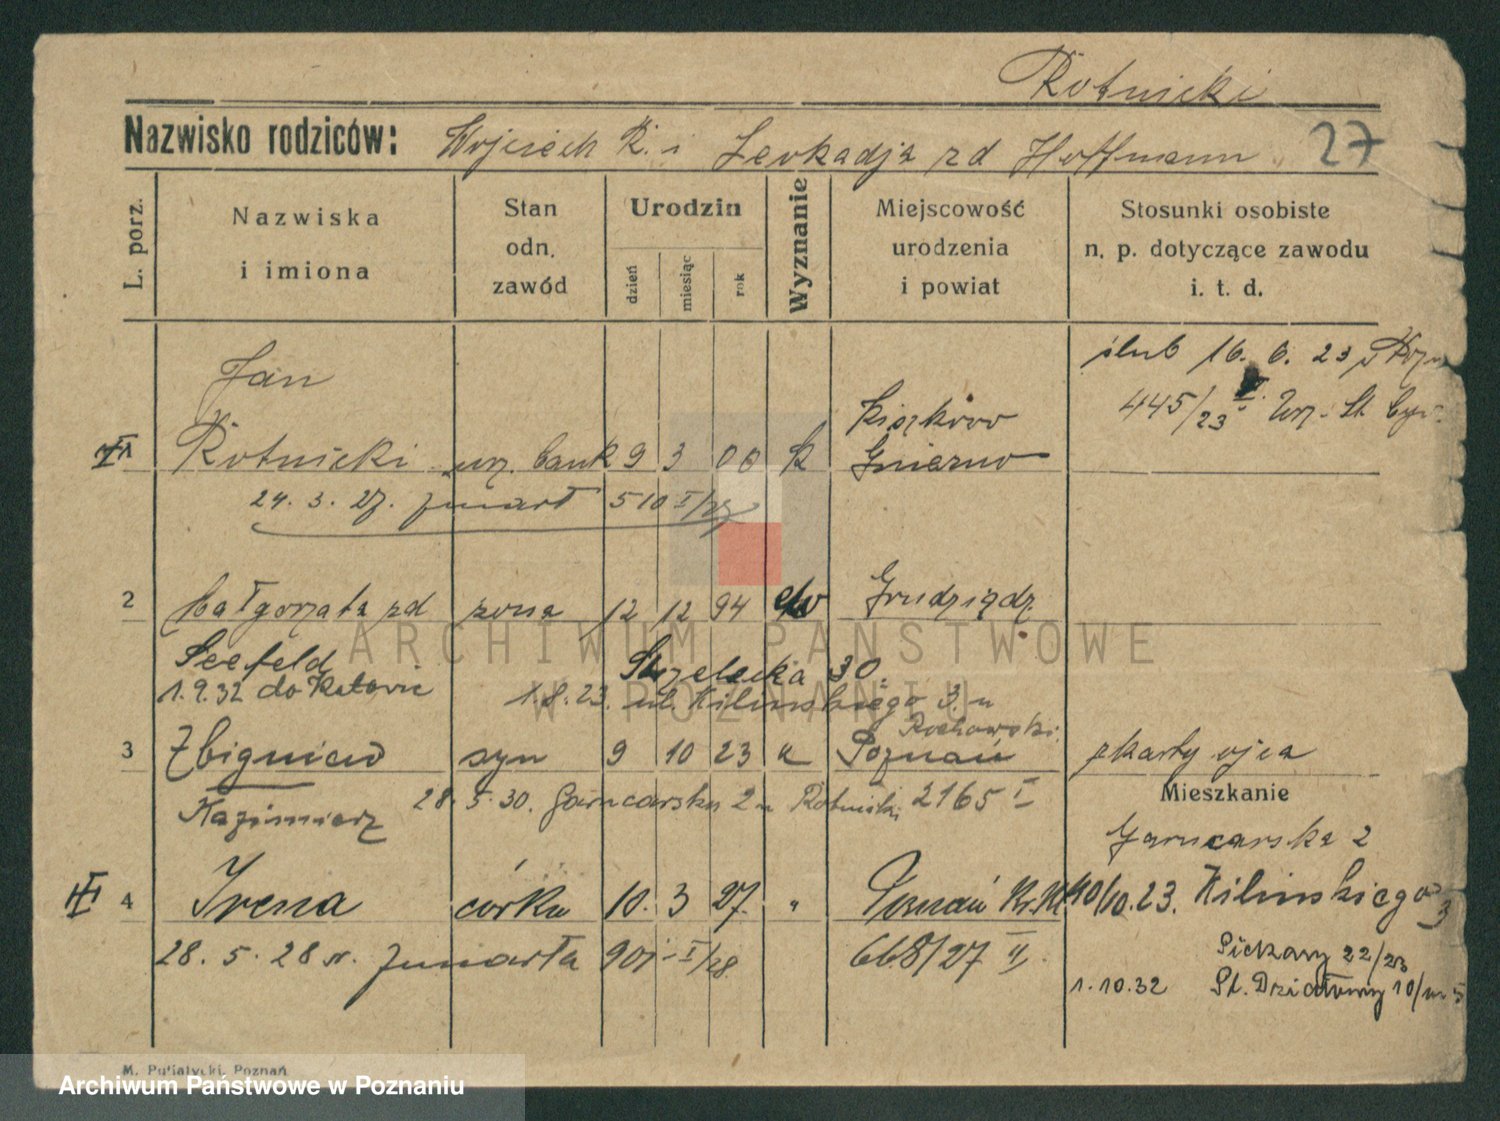 Rotnicki
Nazwisko rodziców: Wojciech R. i Leokadja zd Hoffmann 27
L. porz.
Nazwiska i imiona
Stan odn. zawód
Urodzin
dzień
miesiąc
rok
Wyznanie
Miejscowość urodzenia i powiat
Stosunki osobiste n. p. dotyczące zawodu i. t. d.
ślub 16. 6. 23 w Pozn
445/23 Urz. St. Cyw.
Jan
1 Rotnicki urz. bank 9 3 00 k Kiszkowo Gniezno
24. 3. 27. zmarł 510 I/27
2 Małgorzata zd żona 12 12 94 ew Grudziądz
Seefeld
Strzelecka 30.
1.9.32 do Katowic
1.8.23. ul. Kilińskiego 3. u
Rochowski
3 Zbigniew syn 9 10 23 k Poznań z karty ojca
Mieszkanie
Kazimierz
28. 5. 30. Garncarska 2 u Rotnicki 2165 I
Garncarska 2
4 Irena córka 10. 3 27. " Poznań
10/10.23. Kilińskiego 3
28. 5. 28 r. zmarła 901 I/28.
668/27 II.
Piekary 22/23
1.10.32 St. Działowy 10/m 5
M. Putiatycki, Poznań
ARCHIWUM PAŃSTWOWE
W POZNANIU
Archiwum Państwowe w Poznaniu